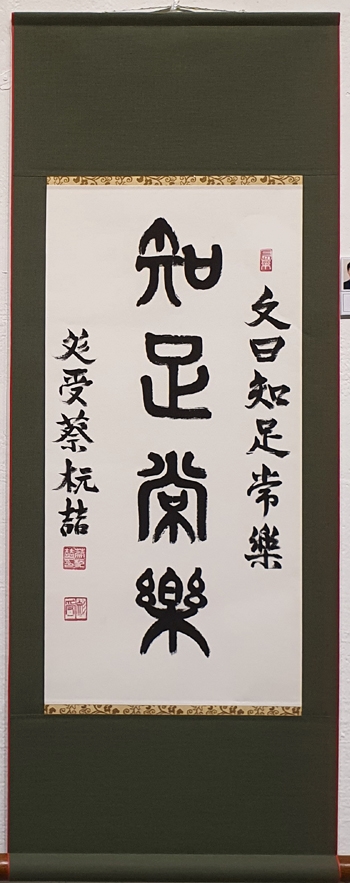 文曰知足常樂
知足常樂
炎受蔡杬喆